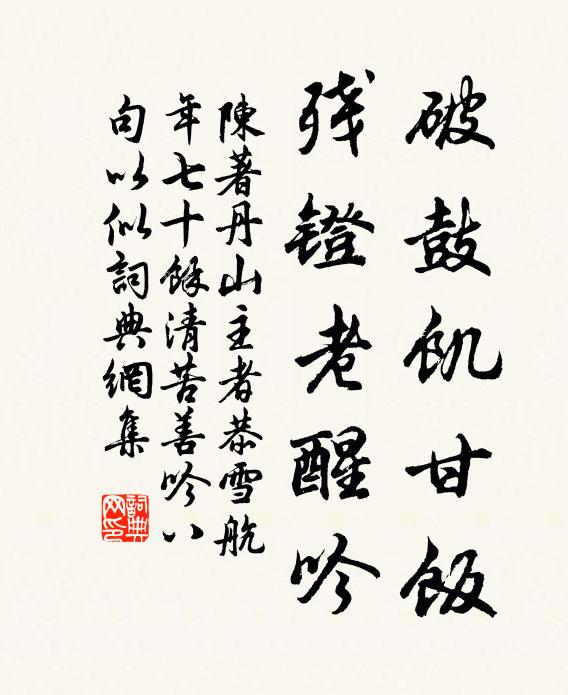 破鼓飢甘飯
残鐙老醒吟
陳著丹山主者恭雪航
年七十餘清苦善吟八
句以似詞典網集
詞典网印